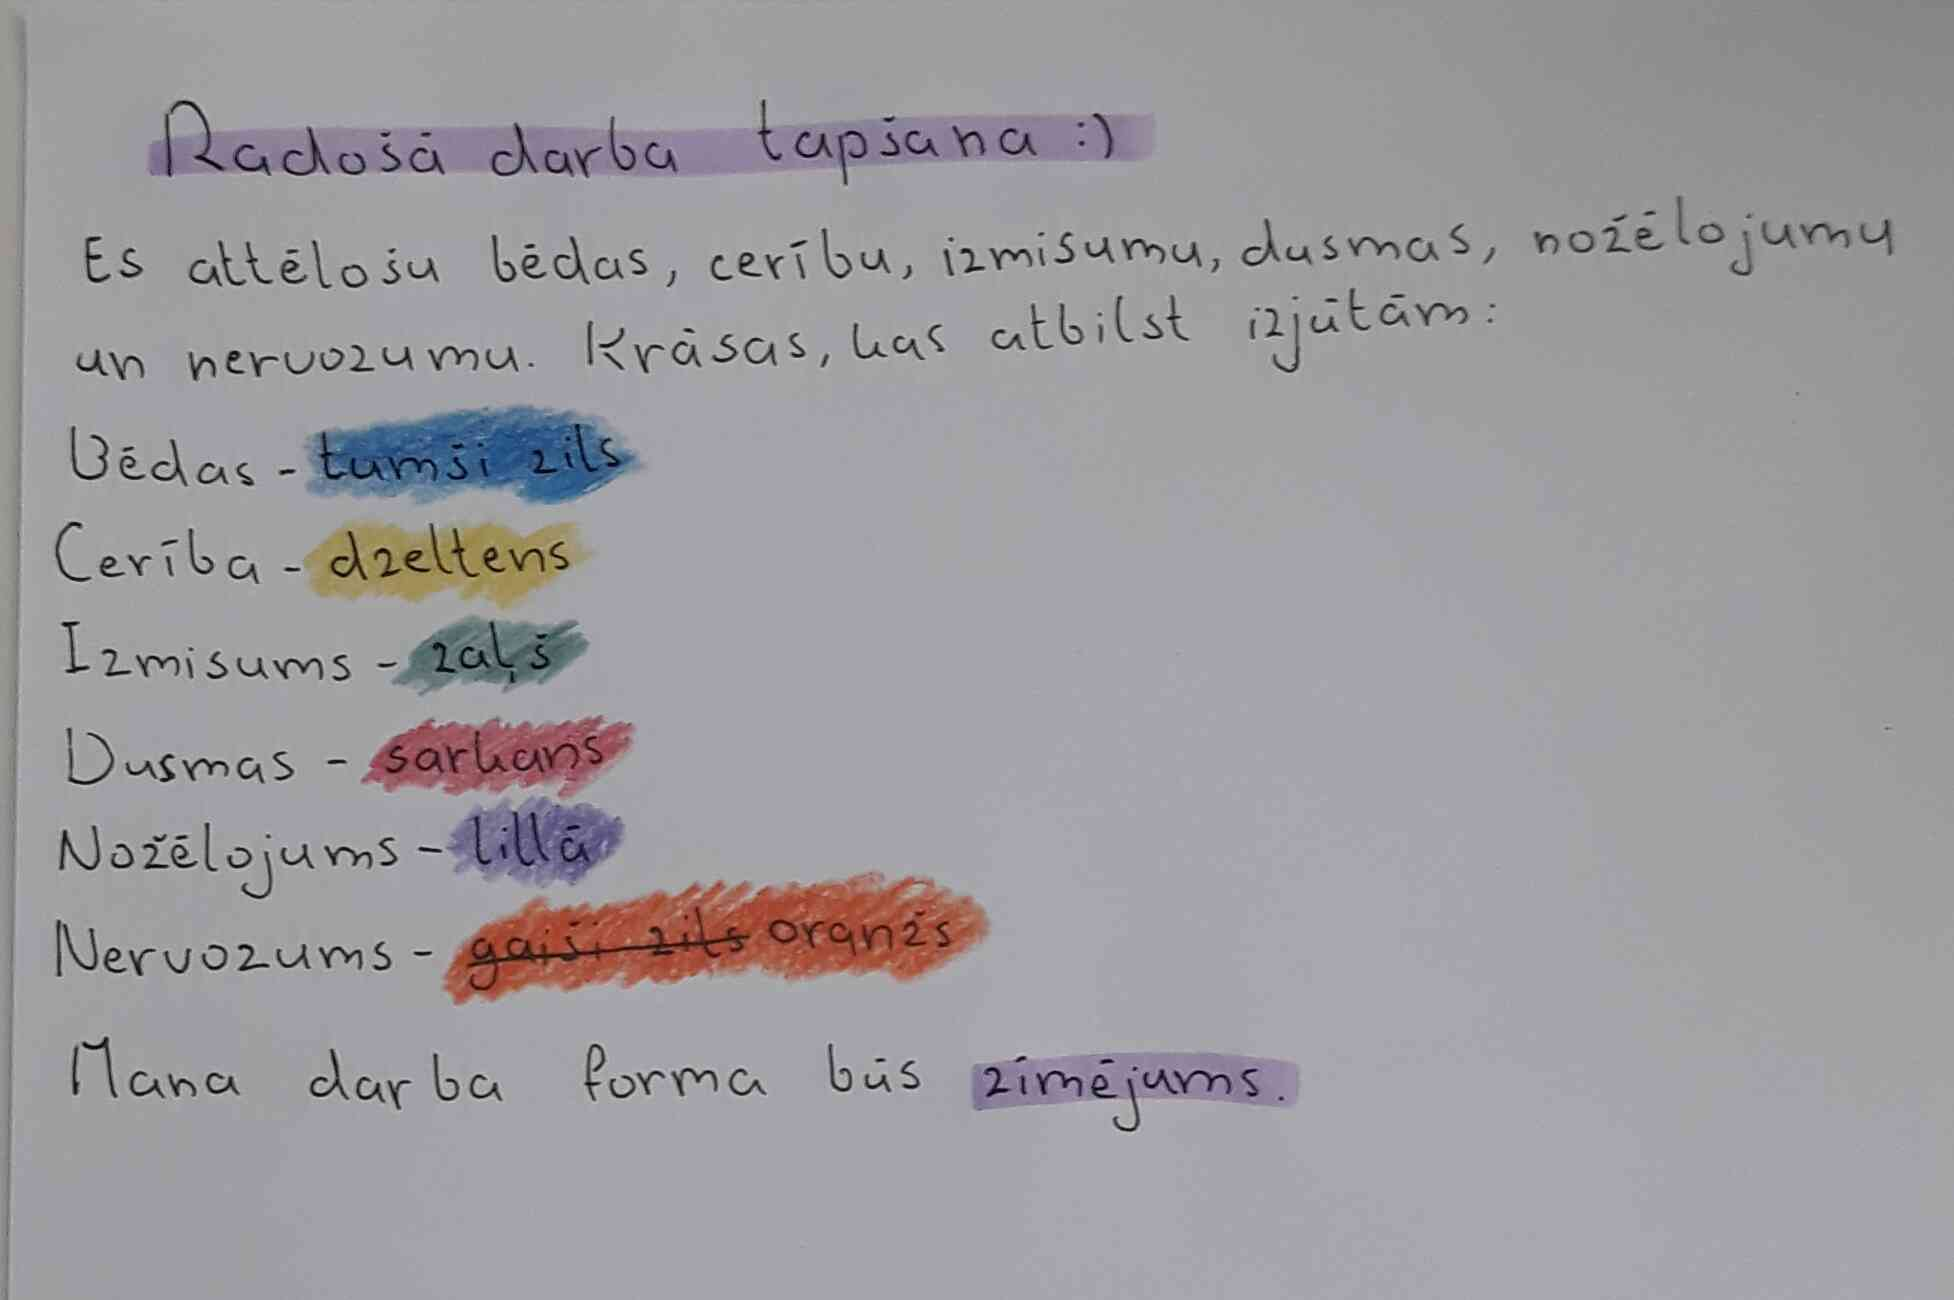 Radošā darba tapšana :)
Es attēlošu bēdas, cerību, izmisumu, dusmas, nožēlojumu
un nervozumu. Krāsas, kas atbilst izjūtām:
Bēdas - tumši zils
Cerība - dzeltens
Izmisums - zaļš
Dusmas - sarkans
Nožēlojums - lillā
Nervozums - gaiši zils oranžs
Mana darba forma būs zīmējums.